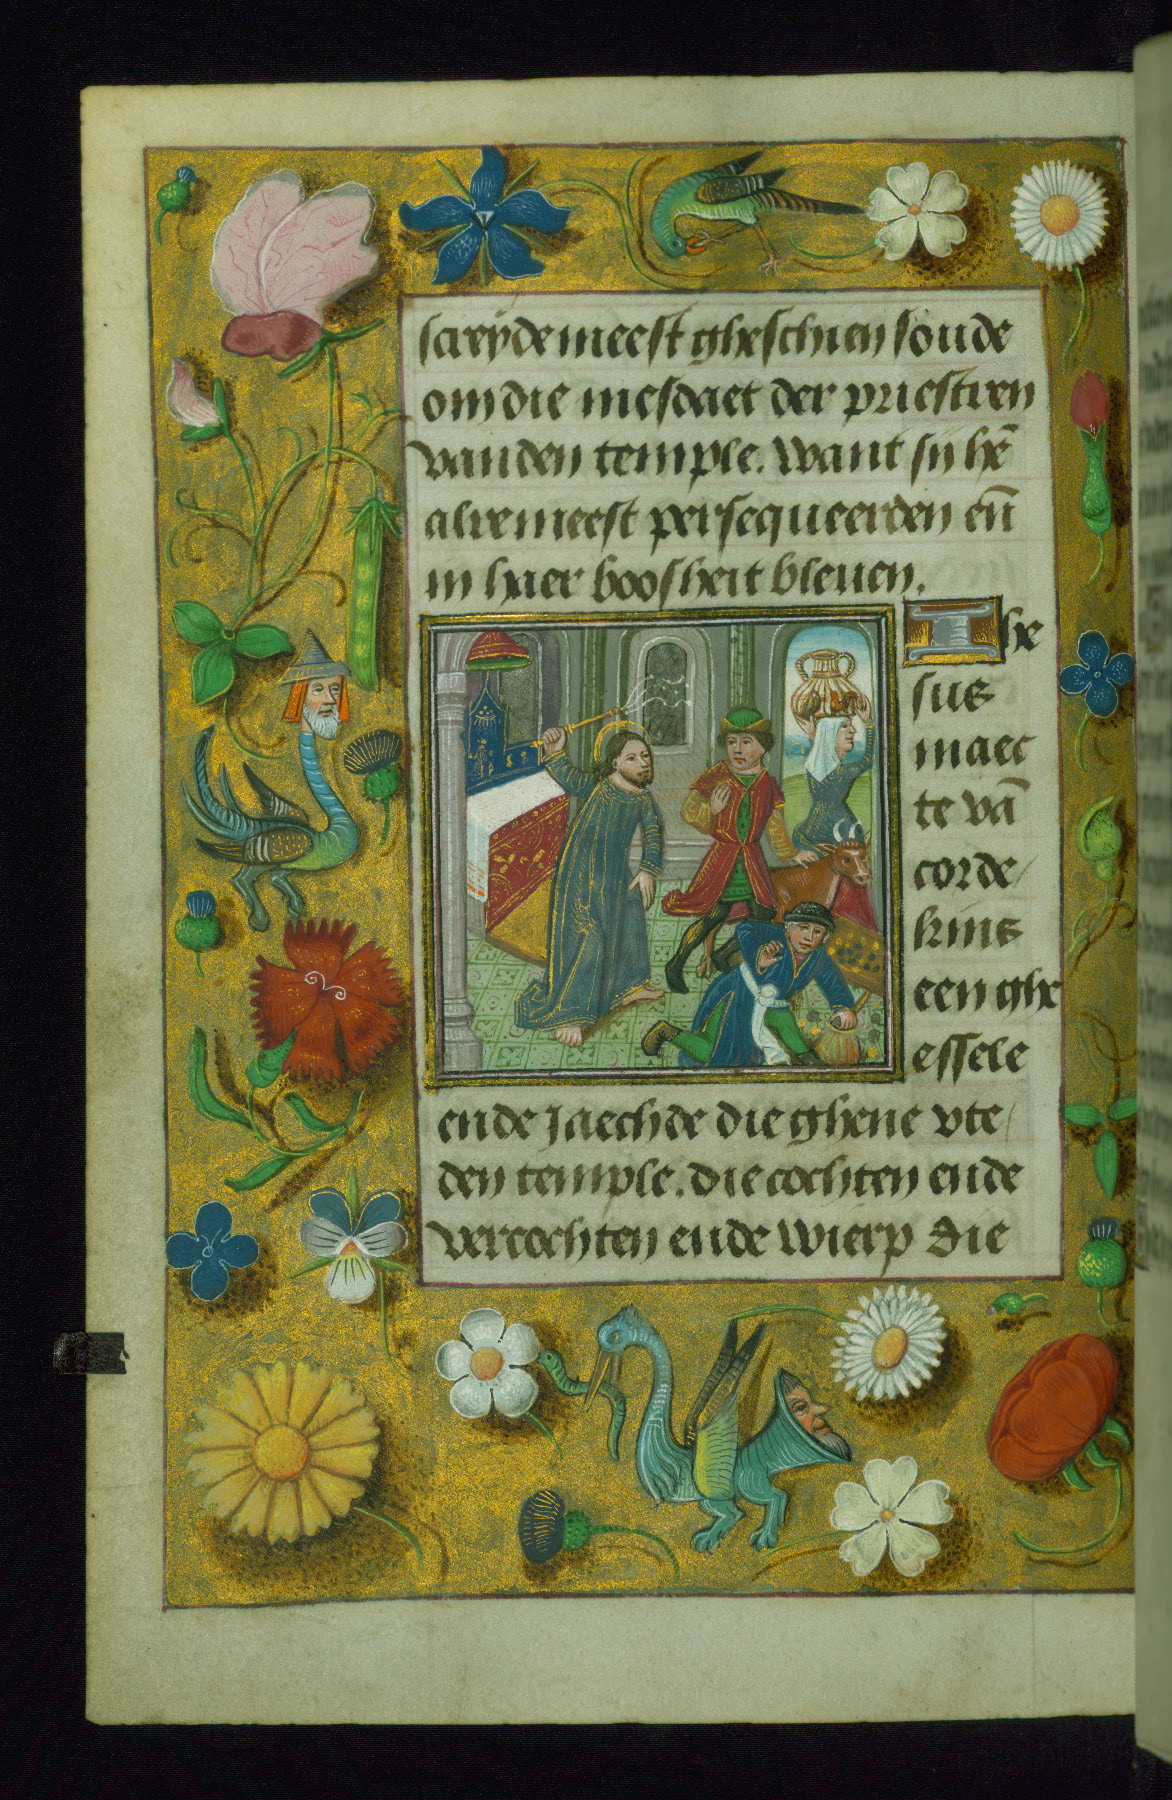 screyde meest gheschien soude
om die mesdaet der priestren
vanden temple. want sij hē
alre meest persequeerden eñ
in haer boosheit bleuen.
Ihe
sus
maec
te vā
corde
kins
een ghe
essele
ende Jaechde die ghene vte
den temple. die cochten ende
vercochten ende wierp die